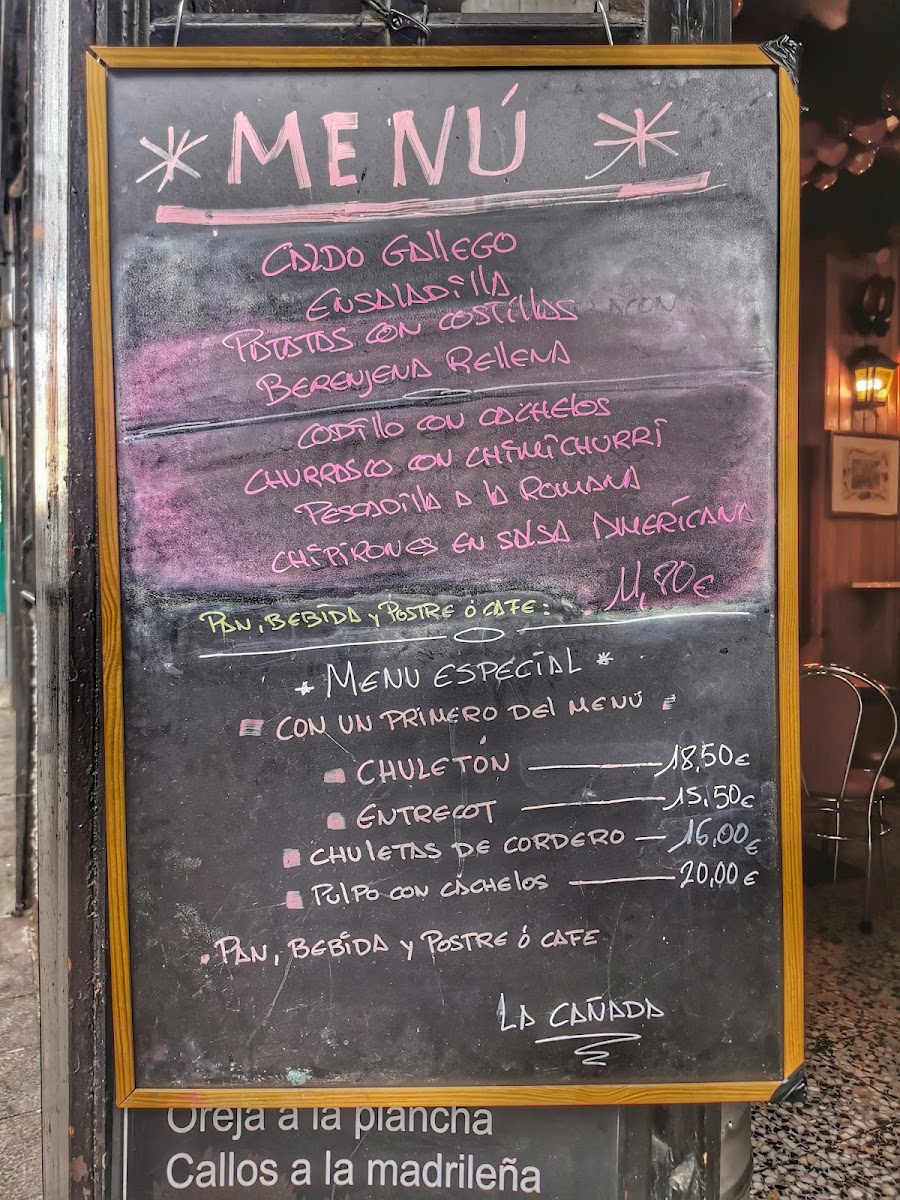 * MENÚ *
CALDO GALLEGO
ENSALADILLA
PATATAS CON COSTILLAS
BERENJENA RELLENA
CODILLO CON CACHELOS
CHURRASCO CON CHIMICHURRI
PESCADILLA A LA ROMANA
CHIPIRONES EN SALSA AMERICANA
11,80€
PAN, BEBIDA Y POSTRE Ó CAFE:
* MENU ESPECIAL *
CON UN PRIMERO DEL MENÚ
CHULETÓN 18,50€
ENTRECOT 15,50€
CHULETAS DE CORDERO 16,00€
PULPO CON CACHELOS 20,00€
. PAN, BEBIDA Y POSTRE Ó CAFE
LA CAÑADA
Oreja a la plancha
Callos a la madrileña